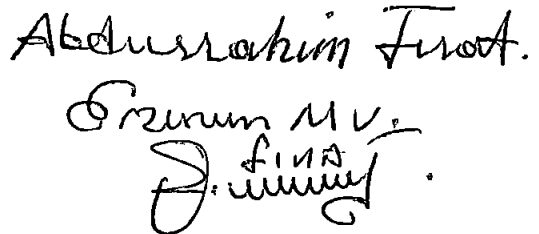 Abdurrahim Fırat.
Erzurum MV.